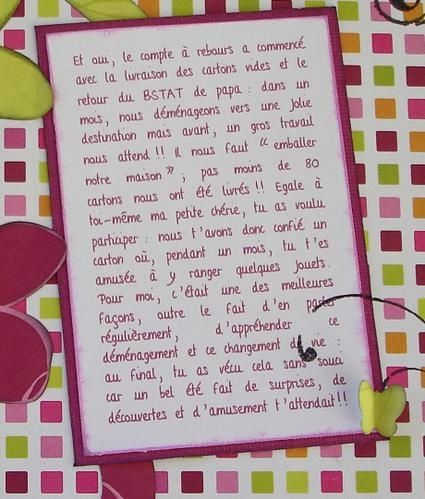 Et oui, le compte à rebours a commencé
avec la livraison des cartons vides et le
retour du BSTAT de papa : dans un
mois, nous déménageons vers une jolie
destination mais avant, un gros travail
nous attend !! Il nous faut “ emballer
notre maison ” ; pas moins de 80
cartons nous ont été livrés !! Egale à
toi-même ma petite chérie, tu as voulu
participer : nous t'avons donc confié un
carton où, pendant un mois, tu t'es
amusée à y ranger quelques jouets.
Pour moi, c'était une des meilleures
façons, outre le fait d'en parler
régulièrement, d'appréhender ce
déménagement et ce changement de vie :
au final, tu as vécu cela sans souci
car un bel été fait de surprises, de
découvertes et d'amusement t'attendait !!